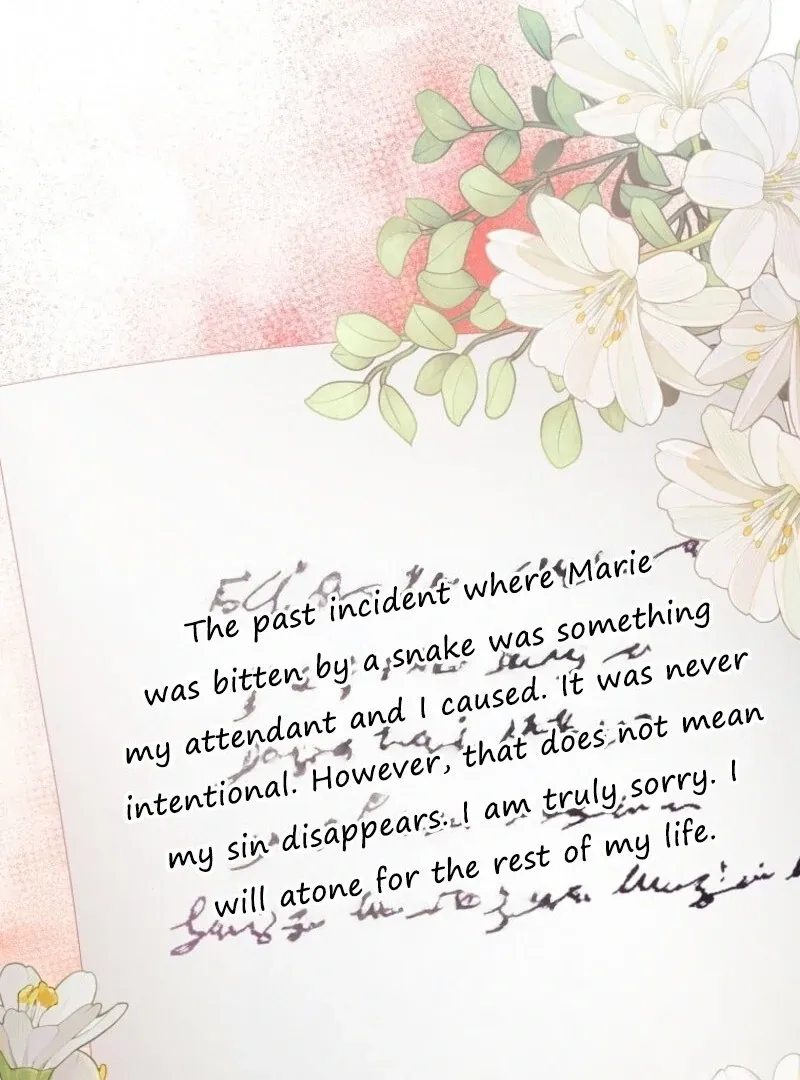 The past incident where Marie
was bitten by a snake was something
my attendant and I caused. It was never
intentional. However, that does not mean
my sin disappears. I am truly sorry. I
will atone for the rest of my life.